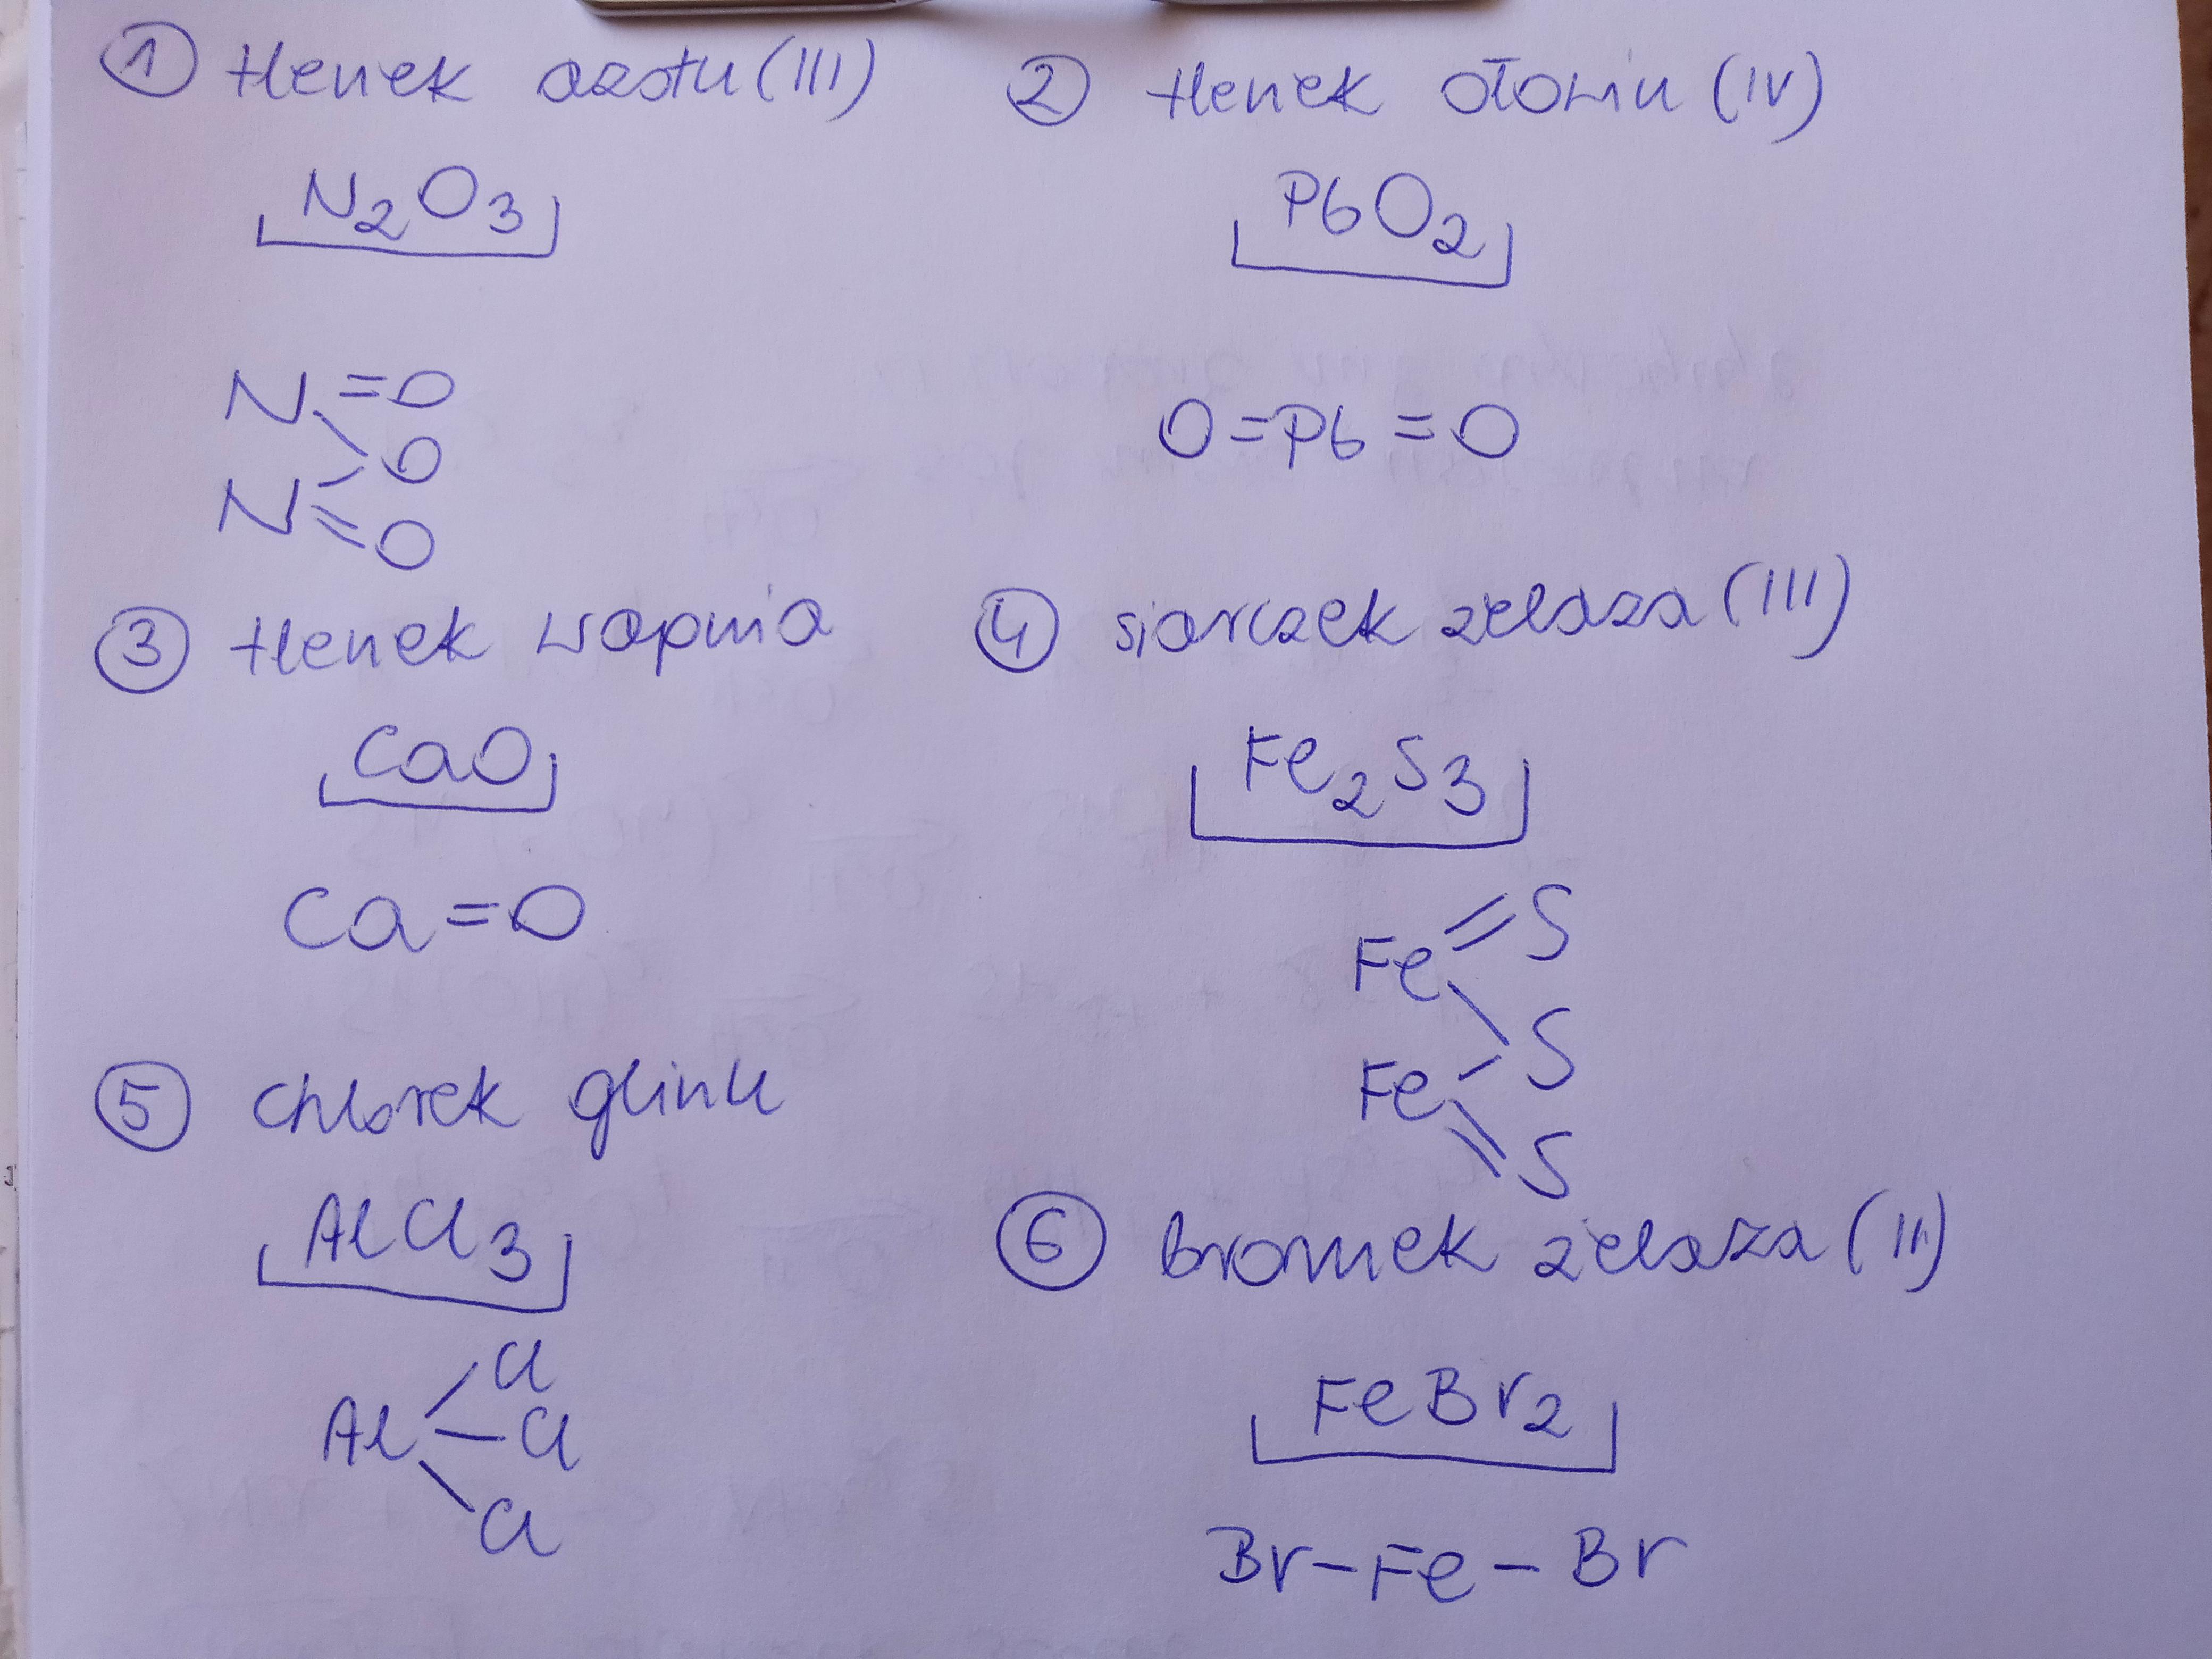 ① tlenek azotu (III)
N₂O₃
N=O
O
N=O
② tlenek ołowiu (IV)
PbO₂
O=Pb=O
③ tlenek wapnia
CaO
Ca=O
④ siarczek żelaza (III)
Fe₂S₃
Fe=S
S
Fe
S
⑤ chlorek glinu
AlCl₃
Cl
Al—Cl
Cl
⑥ bromek żelaza (II)
FeBr₂
Br–Fe–Br